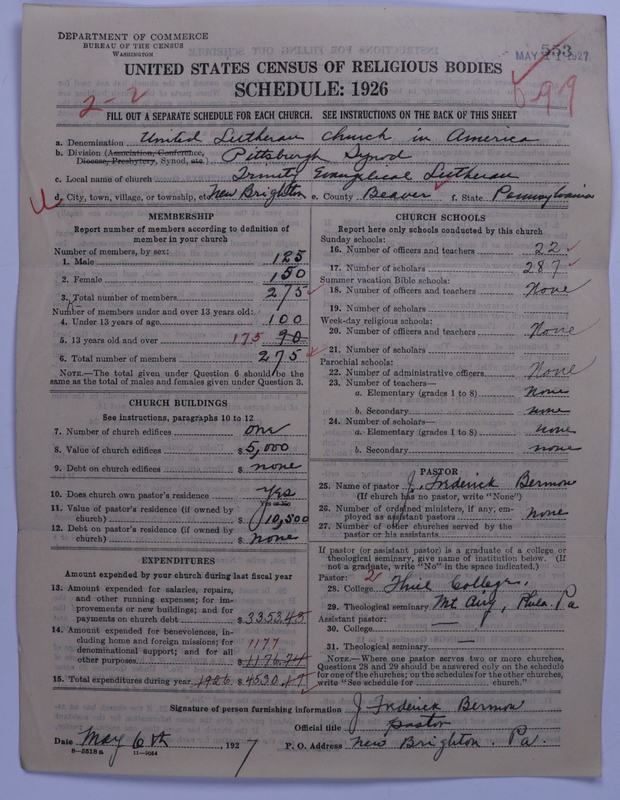 DEPARTMENT OF COMMERCE
BUREAU OF THE CENSUS
WASHINGTON
553
MAY 21 1927
UNITED STATES CENSUS OF RELIGIOUS BODIES
SCHEDULE: 1926
2-2
6-919
FILL OUT A SEPARATE SCHEDULE FOR EACH CHURCH. SEE INSTRUCTIONS ON THE BACK OF THIS SHEET
a. Denomination United Lutheran Church in America
b. Division (Association, Conference, Diocese, Presbytery, Synod, etc.) Pittsburgh Synod
c. Local name of church Trinity Evangelical Lutheran
d. City, town, village, or township, etc. New Brighton e. County Beaver f. State Pennsylvania
MEMBERSHIP
Report number of members according to definition of
member in your church
Number of members, by sex:
1. Male 125
2. Female 150
3. Total number of members 275
Number of members under and over 13 years old:
4. Under 13 years of age 100
5. 13 years old and over 175 90
6. Total number of members 275
NOTE.—The total given under Question 6 should be the
same as the total of males and females given under Question 3.
CHURCH BUILDINGS
See instructions, paragraphs 10 to 12
7. Number of church edifices one
8. Value of church edifices $ 5,000
9. Debt on church edifices $ none
10. Does church own pastor's residence Yes
Yes or No
11. Value of pastor's residence (if owned by
church) $ 10,500
12. Debt on pastor's residence (if owned by
church) $ none
EXPENDITURES
Amount expended by your church during last fiscal year
13. Amount expended for salaries, repairs,
and other running expenses; for im-
provements or new buildings; and for
payments on church debt $ 3353.43
14. Amount expended for benevolences, in-
cluding home and foreign missions; for
denominational support; and for all
other purposes 1177 $ 1176.74
15. Total expenditures during year 1926 $ 4530.17
CHURCH SCHOOLS
Report here only schools conducted by this church
Sunday schools:
16. Number of officers and teachers 22
17. Number of scholars 287
Summer vacation Bible schools:
18. Number of officers and teachers None
19. Number of scholars
Week-day religious schools:
20. Number of officers and teachers None
21. Number of scholars
Parochial schools:
22. Number of administrative officers None
23. Number of teachers—
a. Elementary (grades 1 to 8) None
b. Secondary none
24. Number of scholars—
a. Elementary (grades 1 to 8) none
b. Secondary none
PASTOR
25. Name of pastor J. Frederick Bermon
(If church has no pastor, write "None")
26. Number of ordained ministers, if any, em-
ployed as assistant pastors none
27. Number of other churches served by the
pastor or his assistants
If pastor (or assistant pastor) is a graduate of a college or
theological seminary, give name of institution below. (If
not a graduate, write "No" in the space indicated.)
Pastor: 2
28. College Thiel College,
29. Theological seminary Mt Airy, Phila. Pa
Assistant pastor:
30. College —
31. Theological seminary —
NOTE.—Where one pastor serves two or more churches,
Questions 28 and 29 should be answered only on the schedule
for one of the churches; on the schedules for the other churches,
write "See schedule for church."
Signature of person furnishing information J Frederick Bermon
Official title pastor
Date May 6th, 1927 P. O. Address New Brighton. Pa.
8—5518a 11—9054